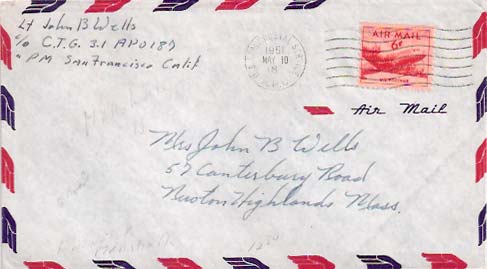 Lt John B Wells
c/o C.T.G. 3.1 APO 187
PM San Francisco Calif
1951
MAY 10
AIR MAIL
6¢
Air Mail
Mrs John B Wells
57 Canterbury Road
Newton Highlands Mass.